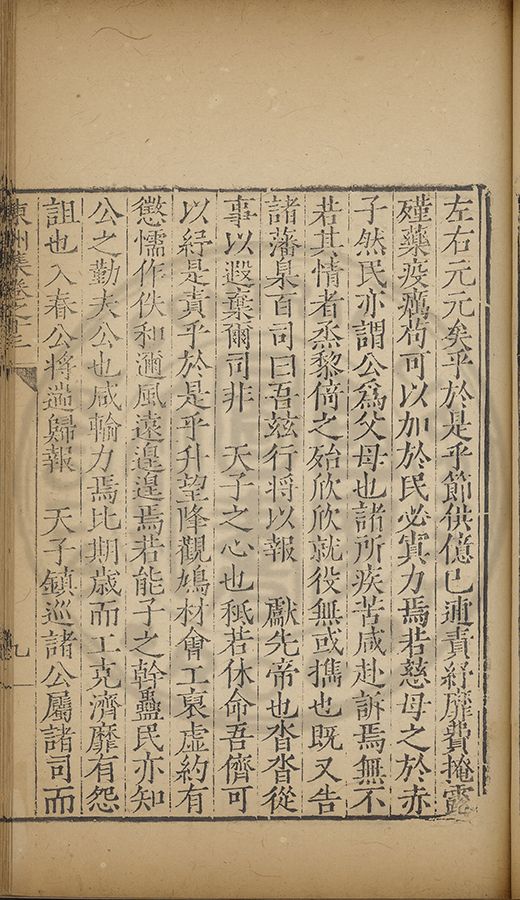 左右元元矣乎於是乎節供億已逋責紓靡費掩露
殣藥疫癘苟可以加於民必實力焉若慈母之於赤
子然民亦謂公爲父母也諸所疾苦咸赴訴焉無不
若其情者烝黎倚之殆欣欣就役無或攜也旣又告
諸藩臬百司曰吾兹行將以報 獻先帝也沓沓從
事以遐棄爾司非 天子之心也秪若休命吾儕可
以紓是責乎於是乎升望隆觀鳩材會工裒虛約有
懲懦作佚和邇風遠遑遑焉若能子之幹蠱民亦知
公之勤夫公也咸輸力焉比期歲而工克濟靡有怨
詛也入春公將遄歸報 天子鎮巡諸公屬諸司而
東州集卷之
九